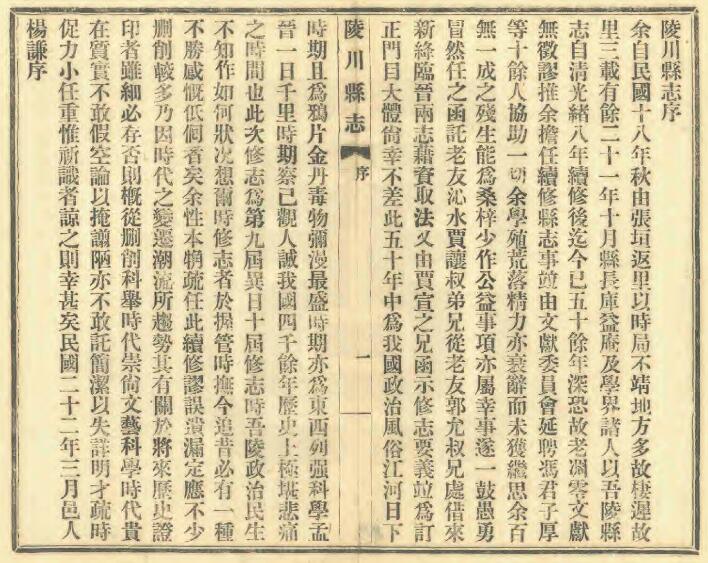 陵川縣志序
余自民國十八年秋由張垣返里以時局不靖地方多故棲遲故
里三載有餘二十一年十月縣長庫益庵及學界諸人以吾陵縣
志自清光緒八年續修後迄今已五十餘年深恐故老凋零文獻
無徵謬推余擔任續修縣志事竝由文獻委員會延聘馮君子厚
等十餘人協助一切余學殖荒落精力亦衰辭而未獲繼思余百
無一成之殘生能爲桑梓少作公益事項亦屬幸事遂一鼓愚勇
冒然任之函託老友沁水賈讓叔弟兄從老友郭允叔兄處借來
新絳臨晉兩志藉資取法又由賈宣之兄函示修志要義竝爲訂
正門目大體尙幸不差此五十年中爲我國政治風俗江河日下
陵川縣志
序
一
時期且爲鴉片金丹毒物彌漫最盛時期亦爲東西列强科學孟
晉一日千里時期察己觀人誠我國四千餘年歷史上極堪悲痛
之時間也此次修志爲第九屆異日十屆修志時吾陵政治民生
不知作如何狀况想爾時修志者於握管時撫今追昔必有一種
不勝感慨低佪者矣余性本懶疏任此續修謬誤遺漏定應不少
删削較多乃因時代之變遷潮流所趨勢其有關於將來歷史證
印者雖細必存否則概從删削科舉時代崇尙文藝科學時代貴
在質實不敢假空論以掩譾陋亦不敢託簡潔以失詳明才疏時
促力小任重惟祈識者諒之則幸甚矣民國二十二年三月邑人
楊謙序